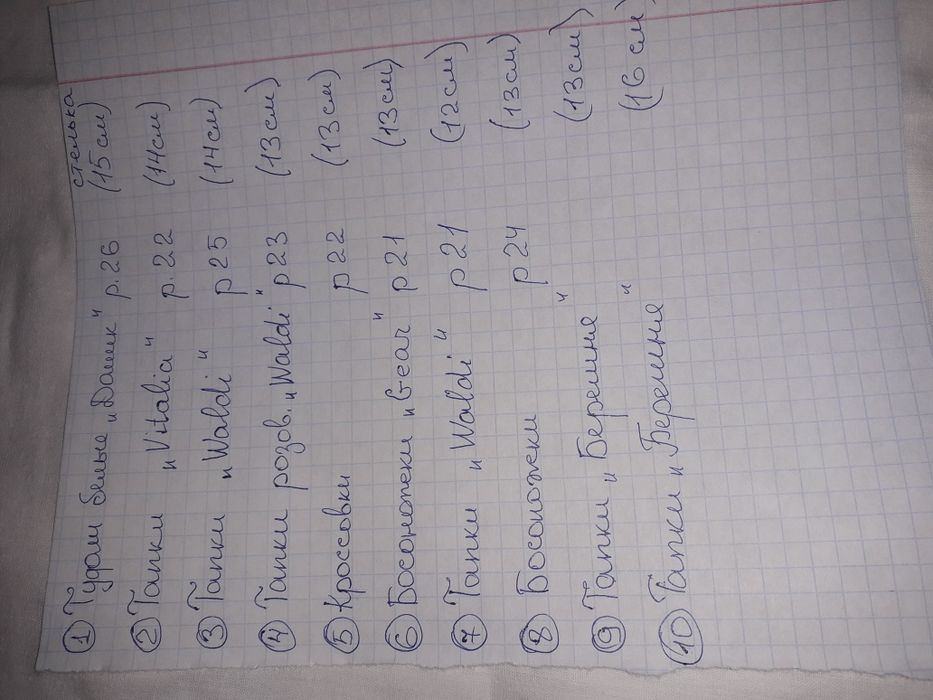 стелька
1 Туфли белые р.26 (15см)
2 Тапки "Vitalia" р.22 (14см)
3 Тапки "Waldi" р25 (14см)
4 Тапки розов. "Waldi" р23 (13см)
5 Кроссовки р22 (13см)
6 Босоножки "Gear" р21 (13см)
7 Тапки "Waldi" р21 (12см)
8 Босоножки р24 (13см)
9 Тапки "Берегиня" (13см)
10 Тапки "Берегиня" (16см)